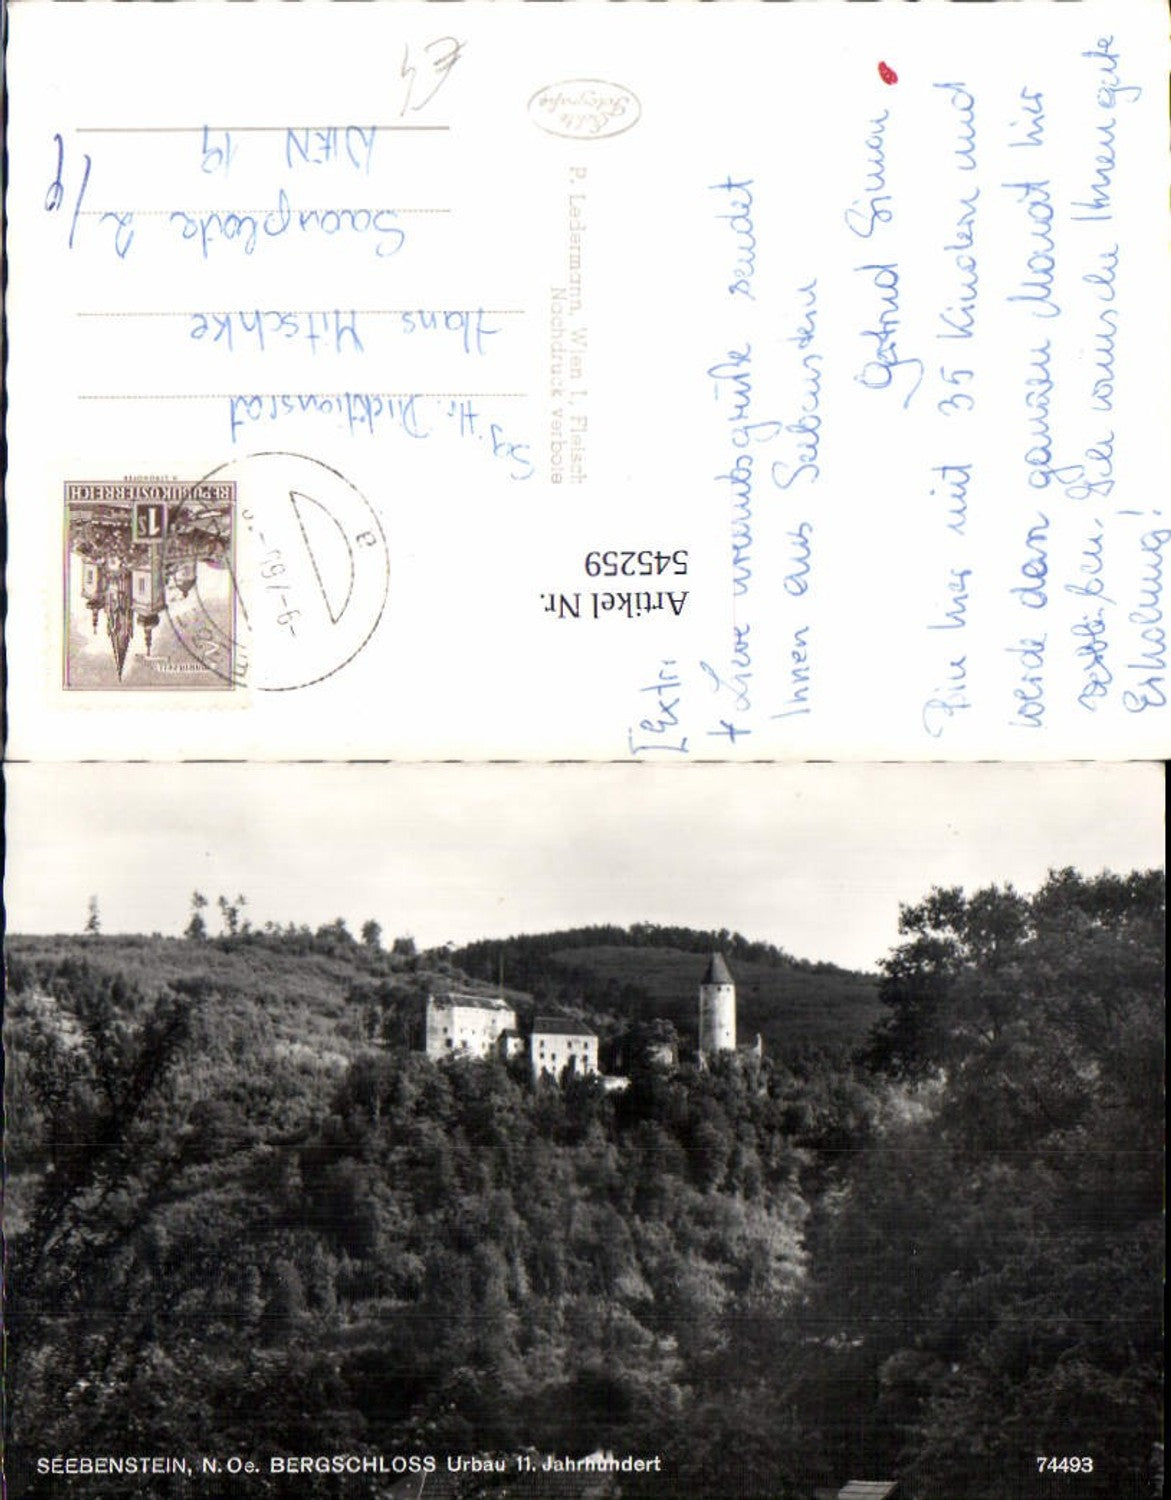 Liebe Urlaubsgrüße sendet
Ihnen aus Seebenstein
Gertrud Simon
Bin hier mit 35 Kindern und
werde den ganzen Monat hier
verbleiben. Ich wünsche Ihnen gute
Erholung!
Artikel Nr.
545259
P. Ledermann, Wien I, Fleisch
Nachdruck verbote
Echte
Fotografie
MARIAZELL
1S
REPUBLIK ÖSTERREICH
Hr. Direktionsrat
Hans Mitschke
2/
WIEN 19
SEEBENSTEIN, N.Oe. BERGSCHLOSS Urbau 11. Jahrhundert
74493